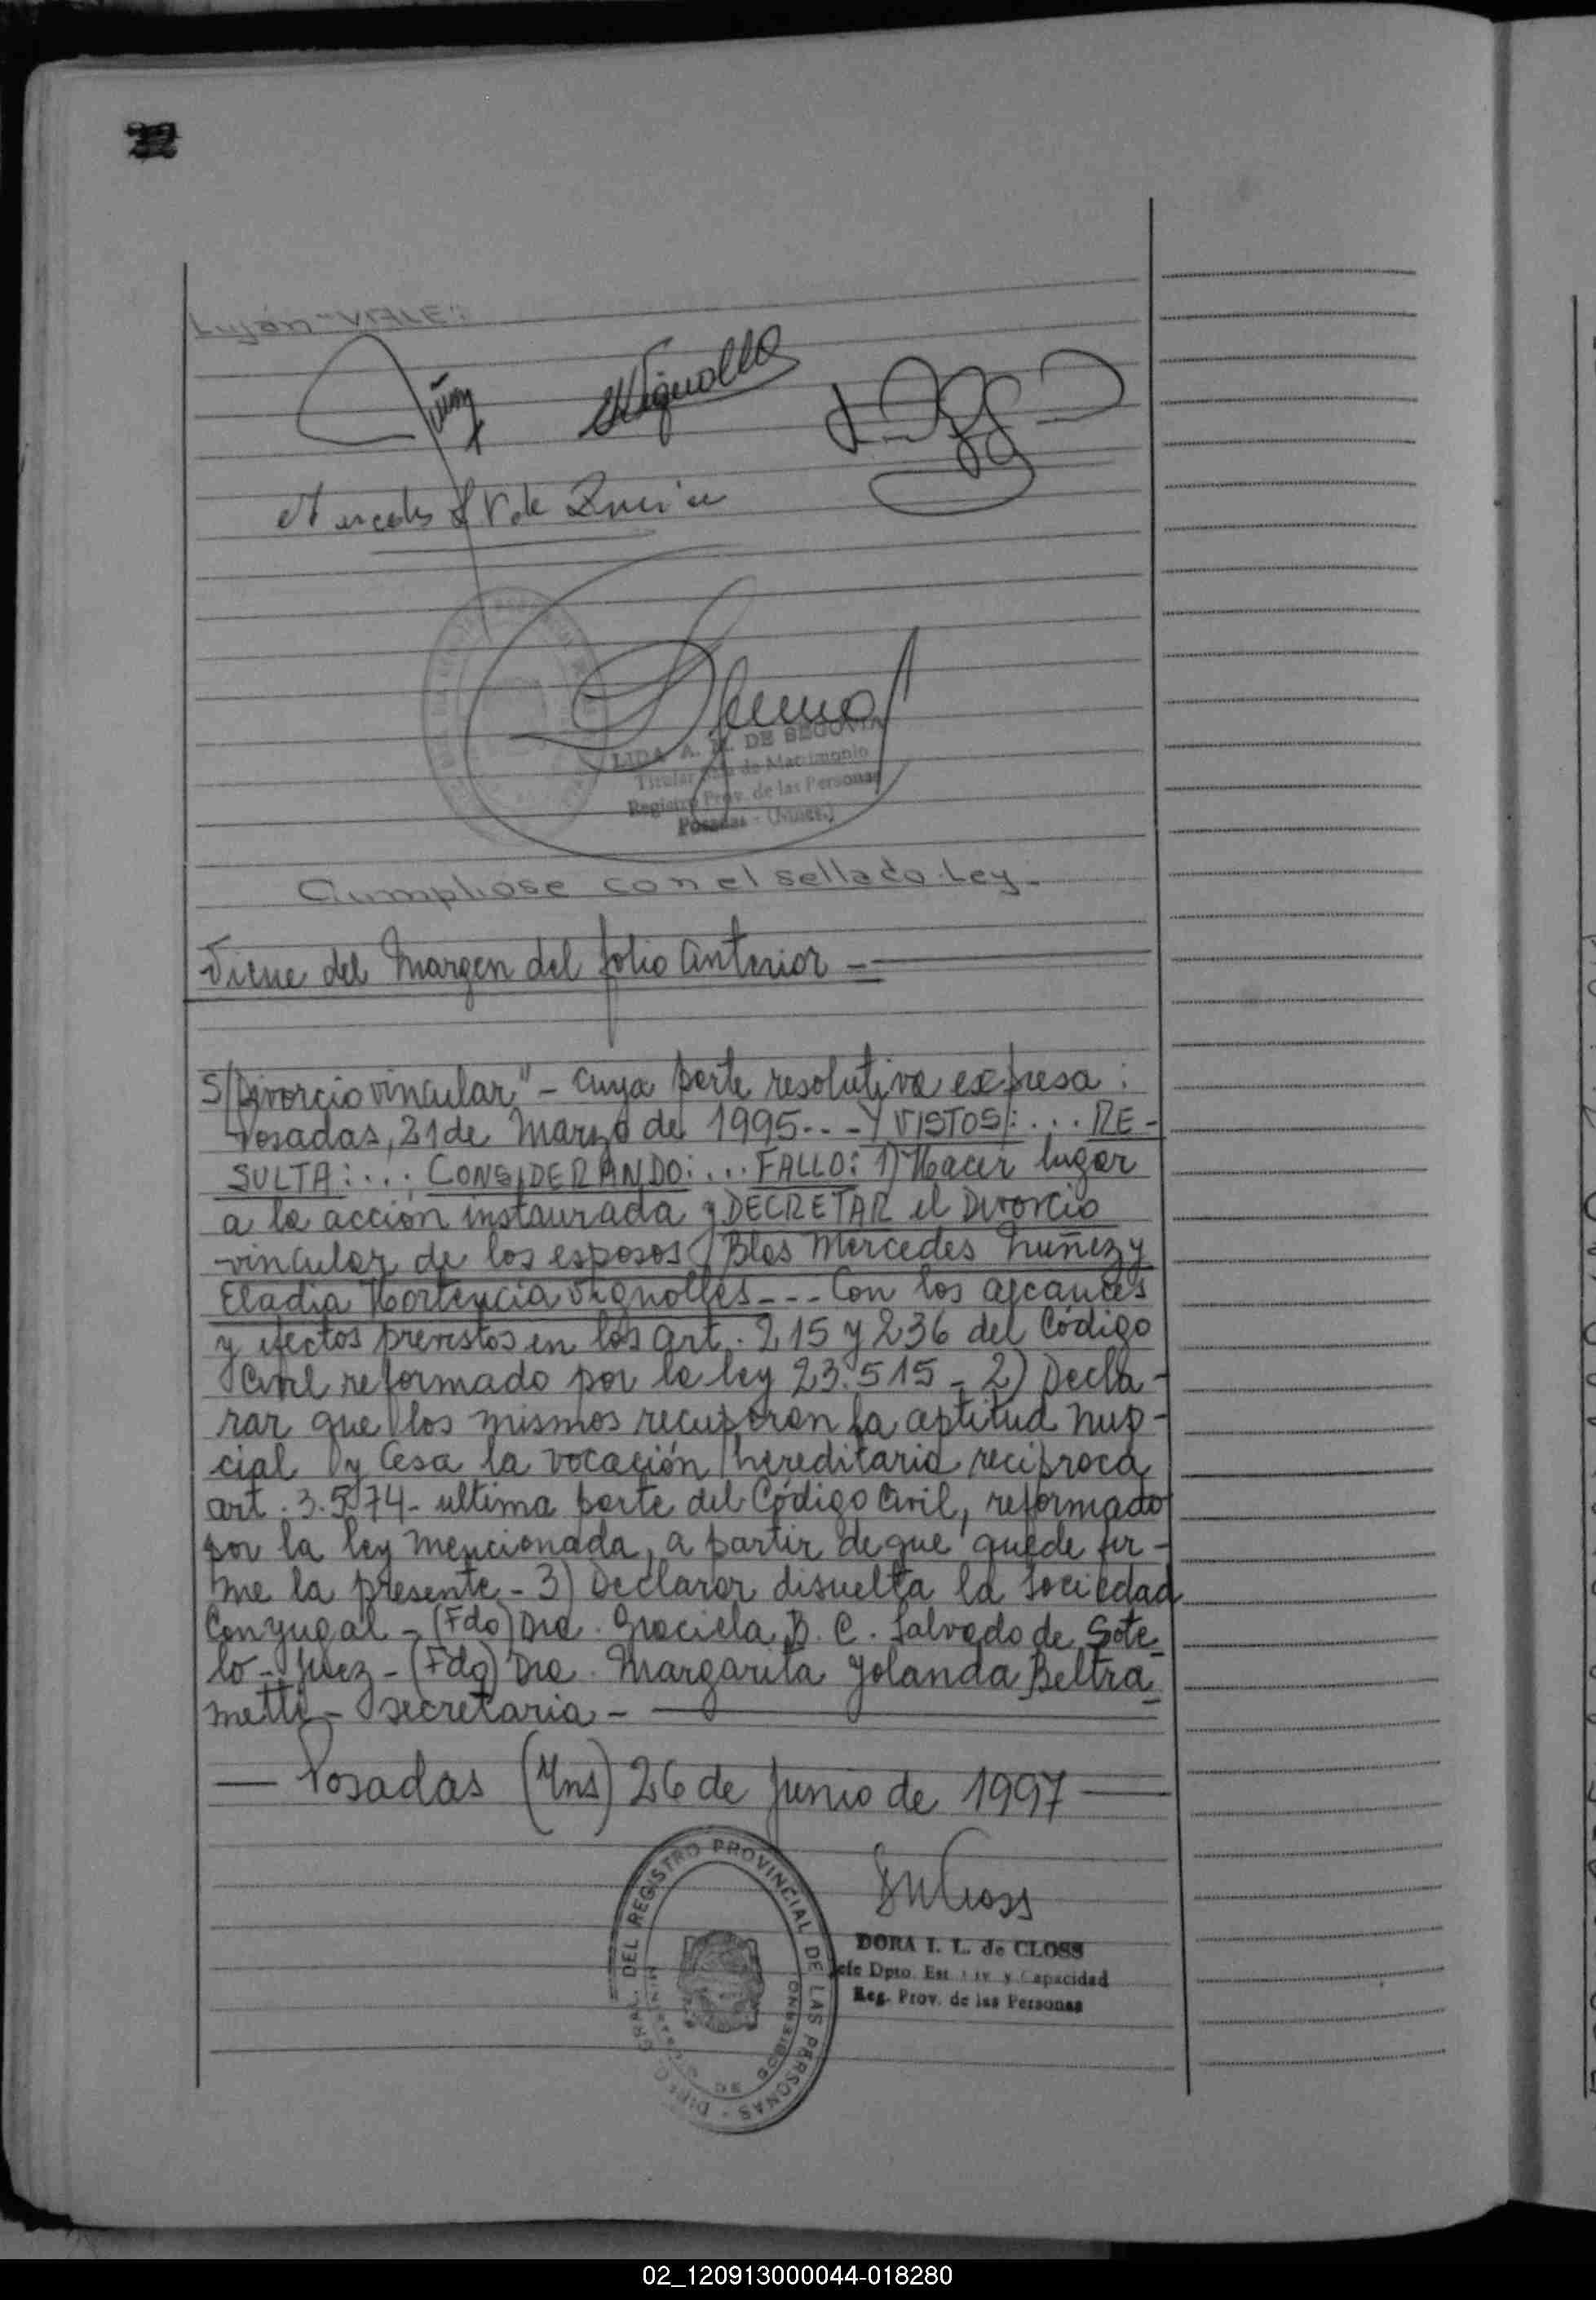 Luján "VALE":
Vignolles
Mercedes
LIDA A. M. DE SEGOVIA
Titular de Matrimonio
Registro Prov. de las Personas
Posadas - (Mnes.)
Cumpliose con el sellado Ley.-
Viene del Margen del folio anterior -
S/Divorcio vincular" - cuya parte resolutiva expresa:
Posadas, 21 de Marzo de 1995.-- Y VISTOS:... RE-
SULTA:... CONSIDERANDO:... FALLO: 1) Hacer lugar
a la acción instaurada y DECRETAR el Divorcio
vincular de los esposos Blas Mercedes Nuñez y
Eladia Hortencia Vignolles--- Con los alcances
y efectos previstos en los art. 215 y 236 del Código
Civil reformado por la ley 23.515 - 2) Decla-
rar que los mismos recuperan la aptitud nup-
cial y Cesa la vocación hereditaria reciproca
art. 3.574- ultima parte del Código Civil, reformado
por la ley mencionada, a partir de que quede fir-
me la presente - 3) Declarar disuelta la Sociedad
Conyugal - (Fdo) Dra. Graciela B. C. Salvado de Sote-
lo - Juez - (Fdo) Dra. Margarita Yolanda Beltra-
metti - secretaria -
— Posadas (Mns) 26 de Junio de 1997 —
DORA I. L. de CLOSS
Jefe Dpto. Est. Civ. y Capacidad
Reg. Prov. de las Personas
DEL REGISTRO PROVINCIAL DE LAS PERSONAS
02_120913000044-018280